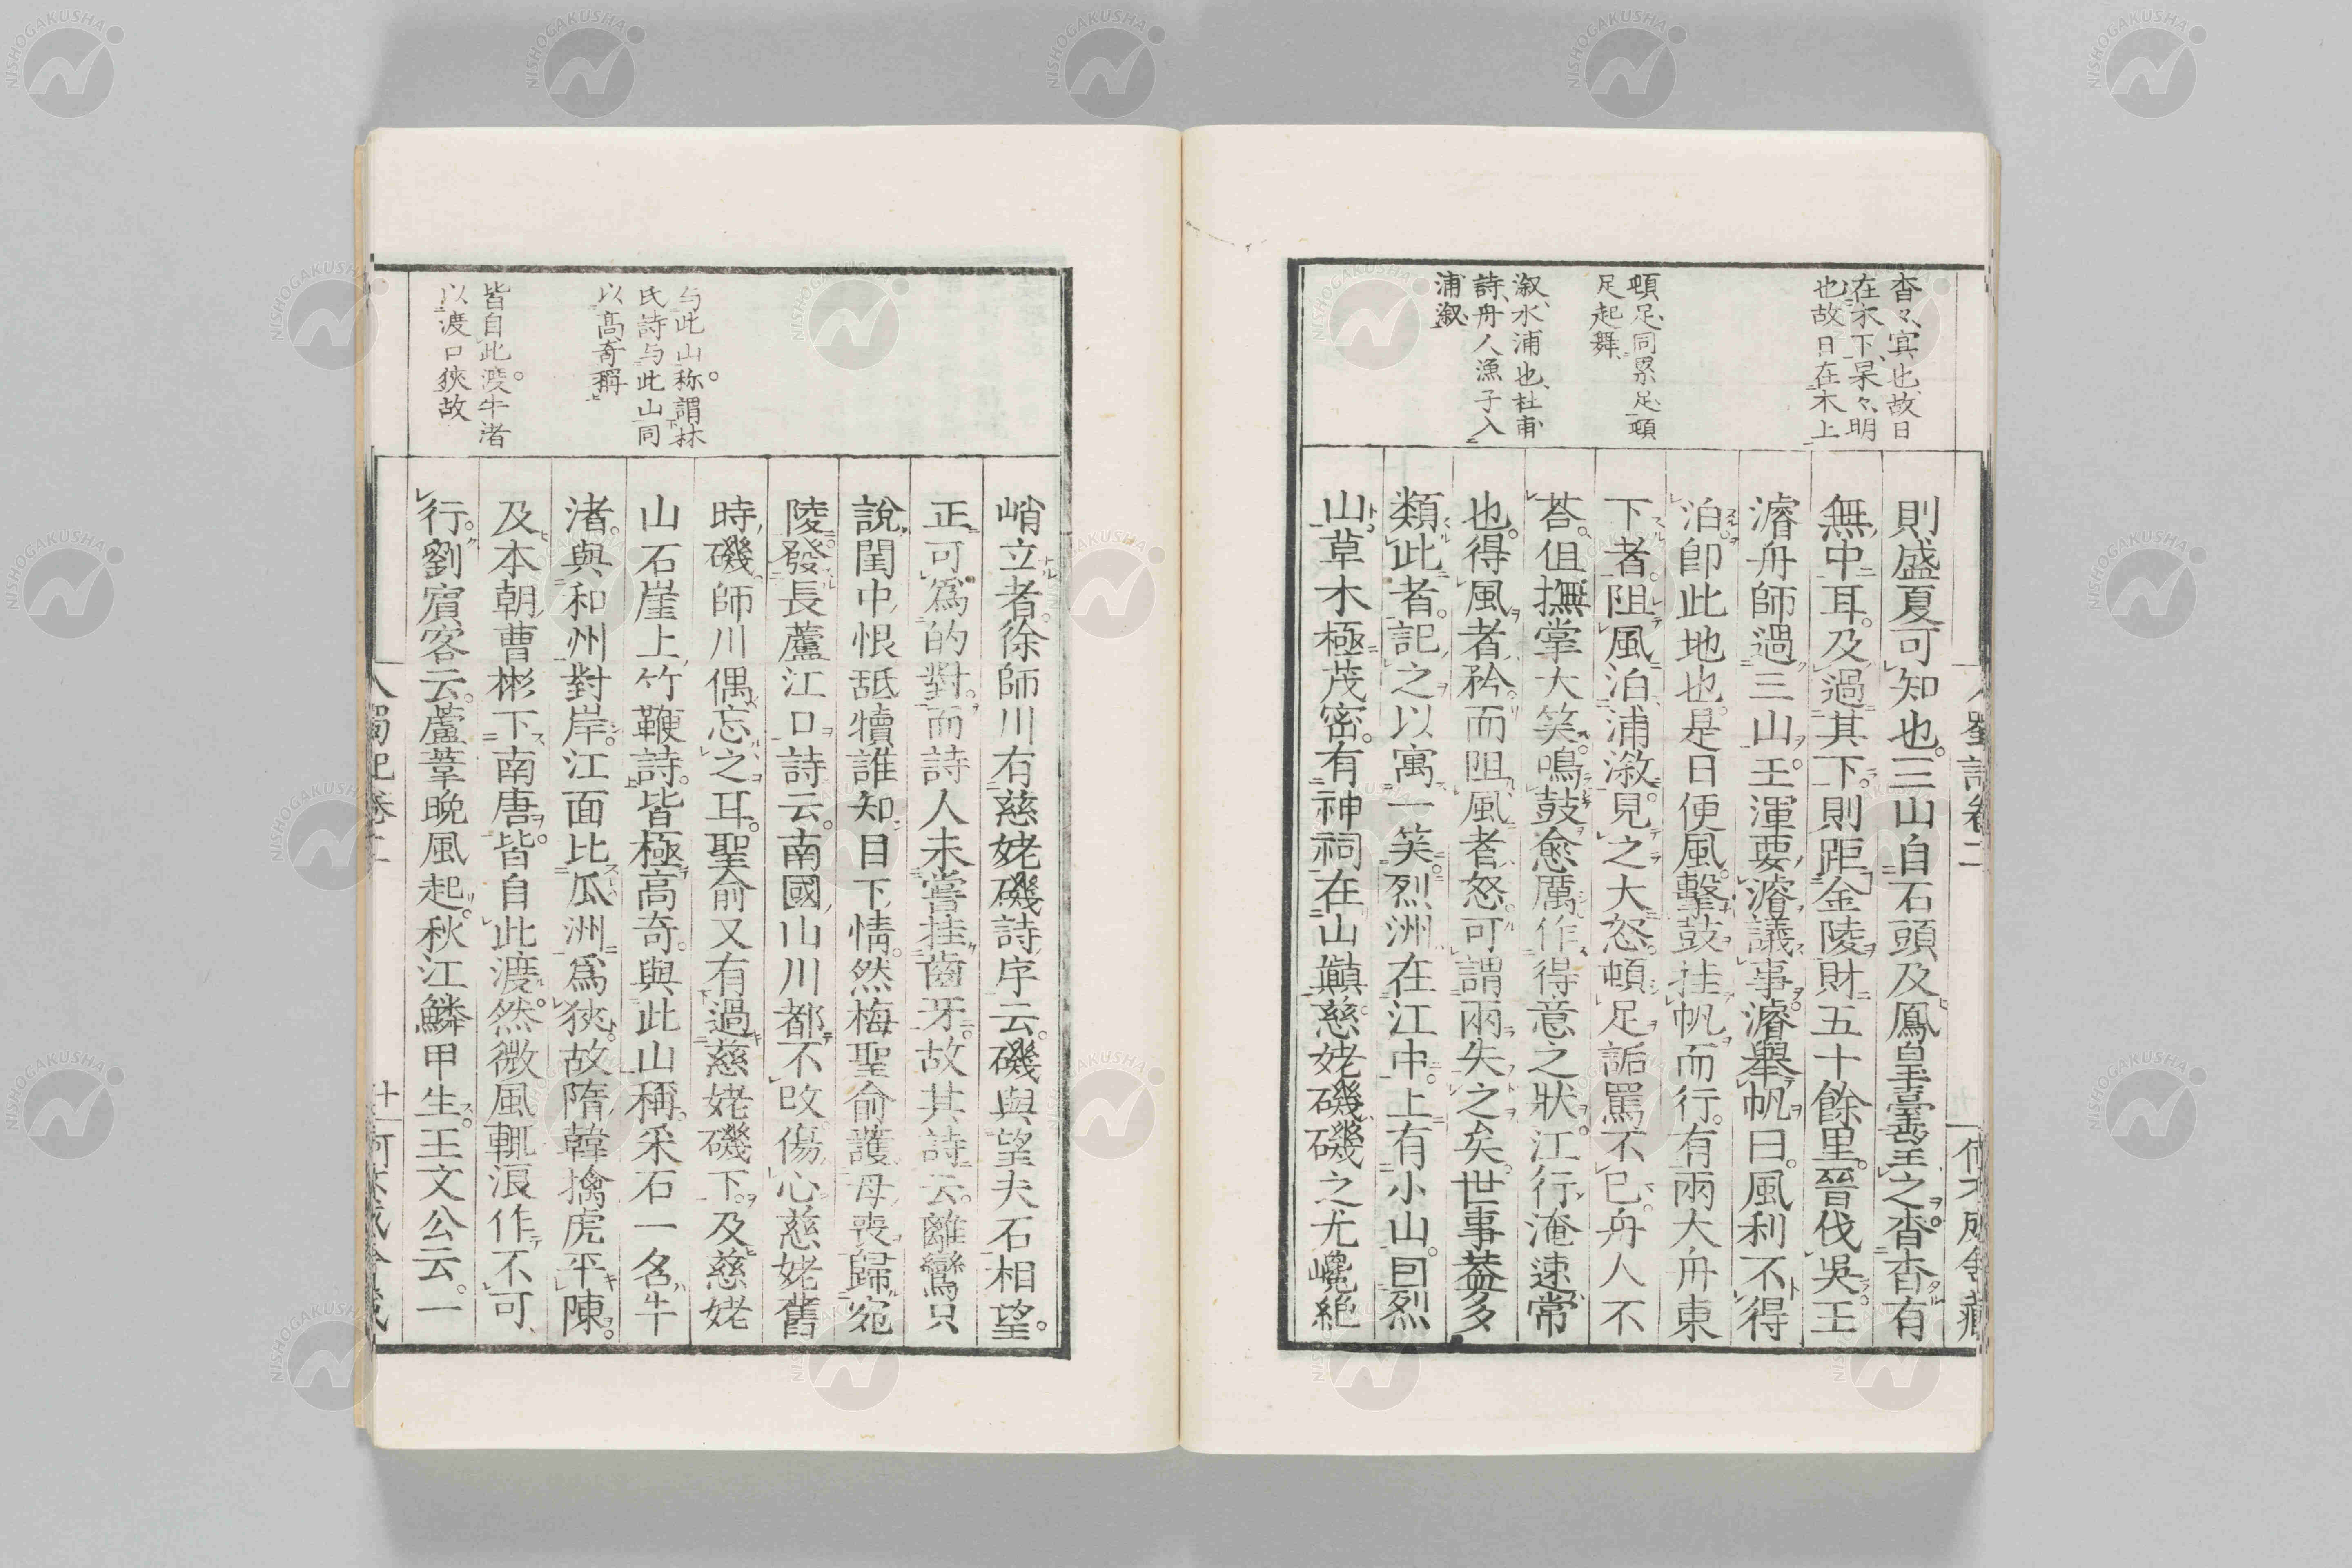 杳々、冥也、故日
在木下、杲々、明
也、故日在木上
頓足、同累足、頓
足起舞、
溆、水浦也、杜甫
詩、舟人漁子入
浦溆
則盛夏可知也。三山自石頭及鳳皇臺望之。杳杳有
無中耳。及過其下。則距金陵財五十餘里。晉伐吳。王
濬舟師過三山。王渾要濬議事。濬擧帆曰。風利不得
泊。卽此地也。是日便風。擊鼓挂帆而行。有兩大舟東
下者。阻風泊浦溆。見之大怒。頓足詬罵不已。舟人不
荅。但撫掌大笑。鳴鼓愈厲。作得意之狀。江行淹速常
也。得風者矜。而阻風者怒。可謂兩失之矣。世事葢多
類此者。記之以寓一笑。烈洲在江中。上有小山。曰烈
山。草木極茂密。有神祠在山巓。慈姥磯磯之尤巉絶
与此山称。謂林
氏詩与此山同
以高奇稱
皆自此渡。牛渚
以渡口狹故
峭立者。徐師川有慈姥磯詩序云。磯與望夫石相望。
正可爲的對。而詩人未嘗挂齒牙。故其詩云。離鸞只
說閨中恨。舐犢誰知目下情。然梅聖俞護母喪歸宛
陵。發長蘆江口詩云。南國山川都不改。傷心慈姥舊
時磯。師川偶忘之耳。聖俞又有過慈姥磯下。及慈姥
山石崖上竹鞭詩。皆極高奇。與此山稱。采石一名牛
渚。與和州對岸。江面比瓜洲爲狹。故隋韓擒虎平陳。
及本朝曹彬下南唐。皆自此渡。然微風輒浪作不可
行。劉賓客云。蘆葦晚風起。秋江鱗甲生。王文公云。一